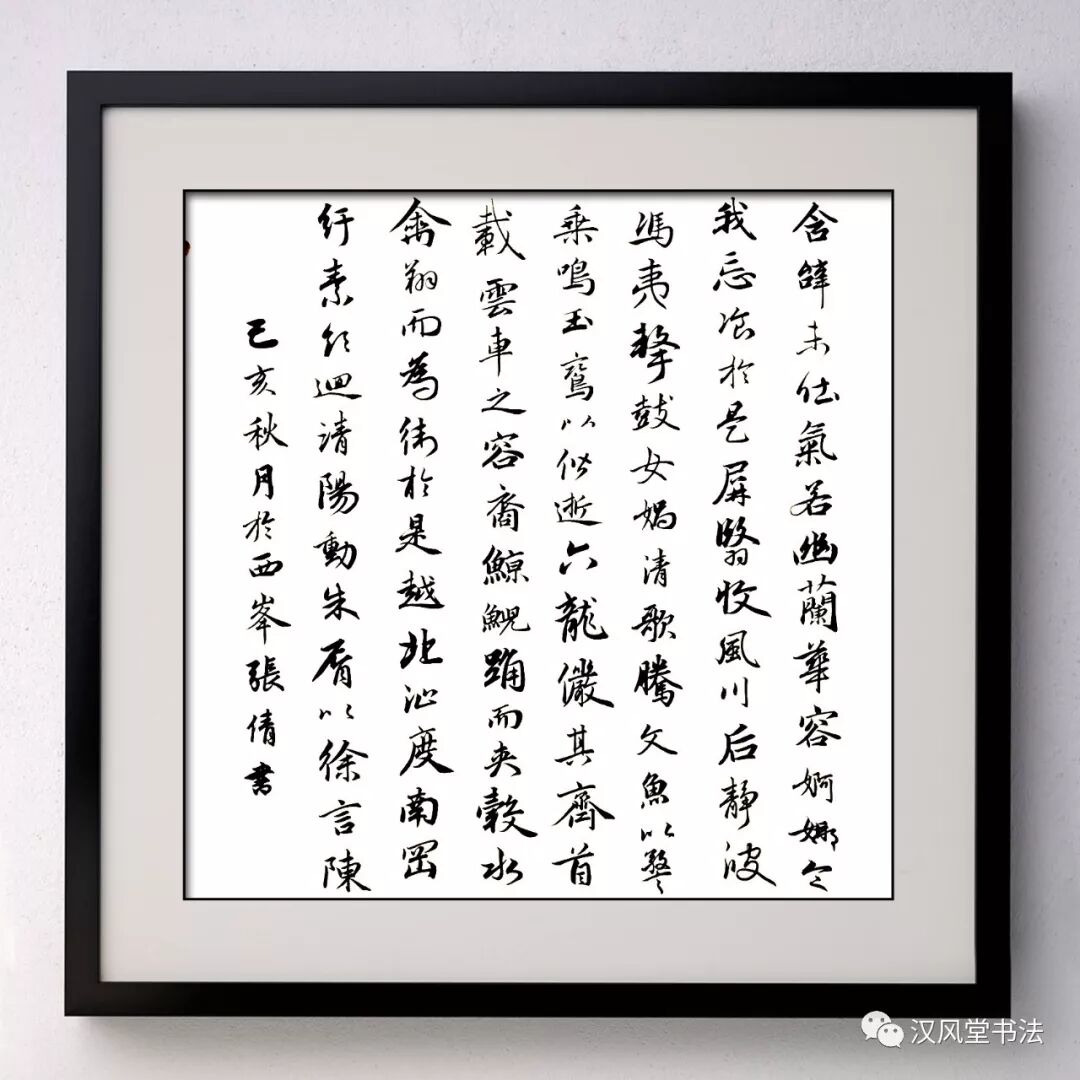 含辭未吐氣若幽蘭華容婀娜令
我忘飡於是屏翳收風川后靜波
馮夷擊鼓女媧清歌騰文魚以警
乗鳴玉鸞以偕逝六龍儼其齊首
載雲車之容裔鯨鯢踊而夾轂水
禽翔而為衛於是越北沚度南岡
紆素領迴清陽動朱脣以徐言陳
己亥秋月於西峯張倩書
汉风堂书法